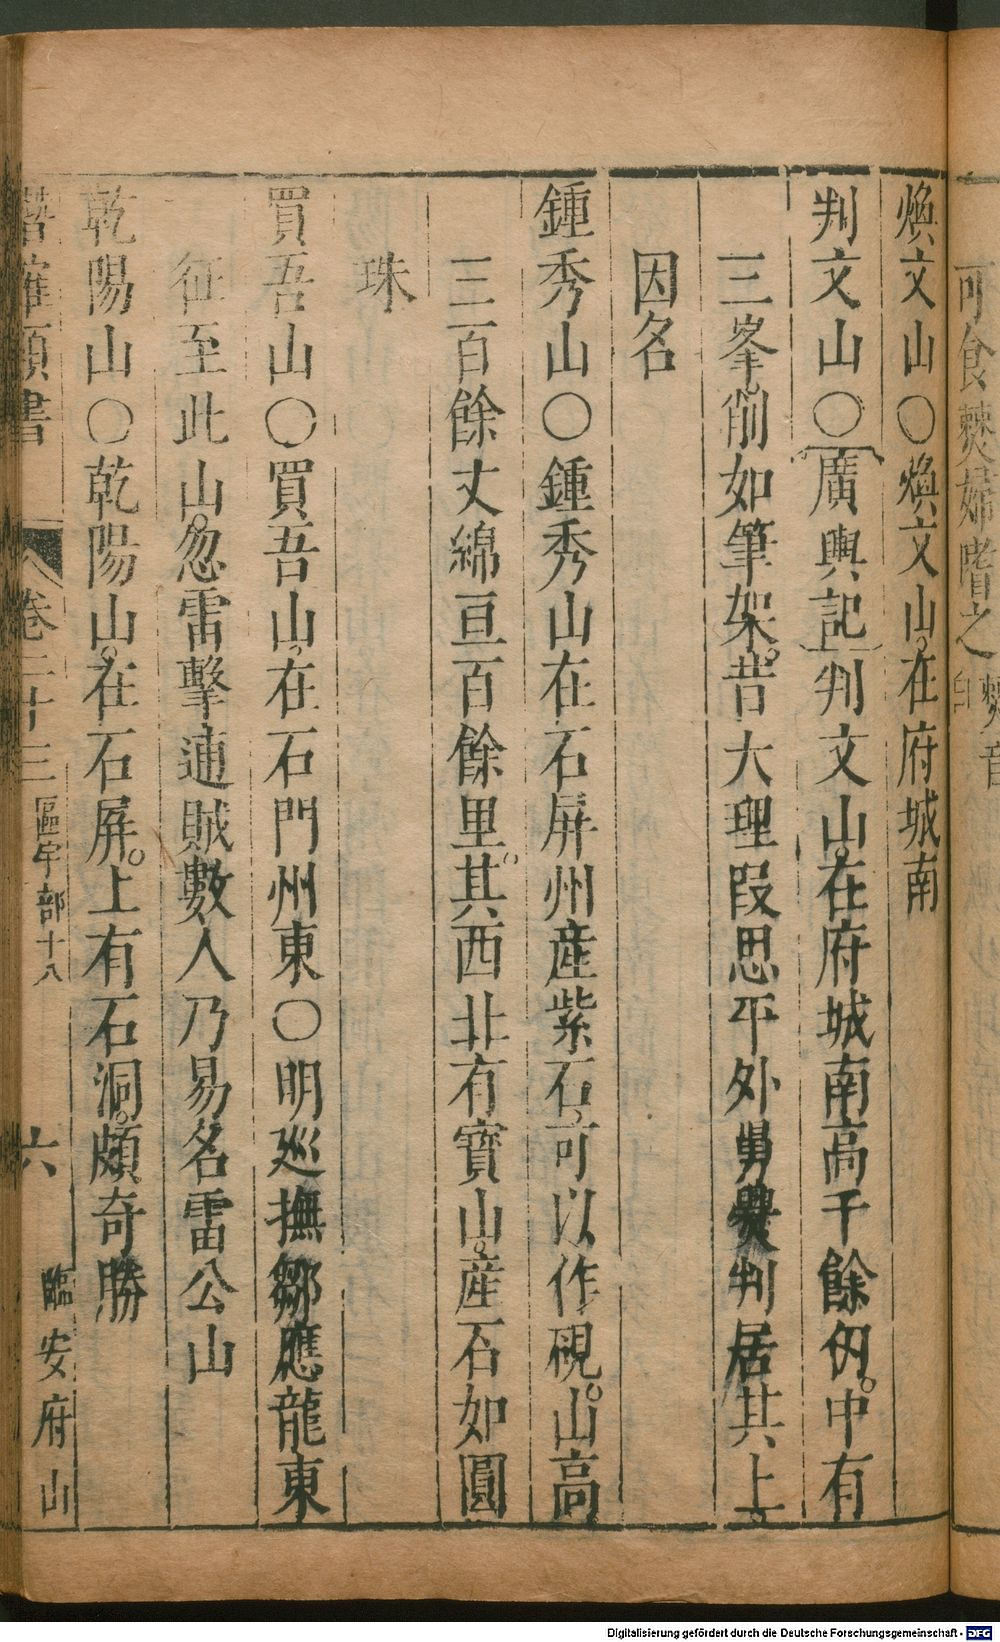 可食僰婦嗜之
煥文山○煥文山。在府城南
判文山○廣輿記判文山。在府城南高千餘仞。中有
三峯。削如筆架。昔大理段思平外舅爨判居其上
因名
鍾秀山○鍾秀山在石屏州產紫石。可以作硯。山高
三百餘丈綿亘百餘里。其西北有寶山。產石如圓
珠
買吾山○買吾山。在石門州東○明巡撫鄒應龍東
征至此山。忽雷擊逋賊數人乃易名雷公山
乾陽山○乾陽山。在石屏。上有石洞。頗奇勝
潛確類書 卷二十三 區宇部十八 六 臨安府山
Digitalisierung gefördert durch die Deutsche Forschungsgemeinschaft - DFG